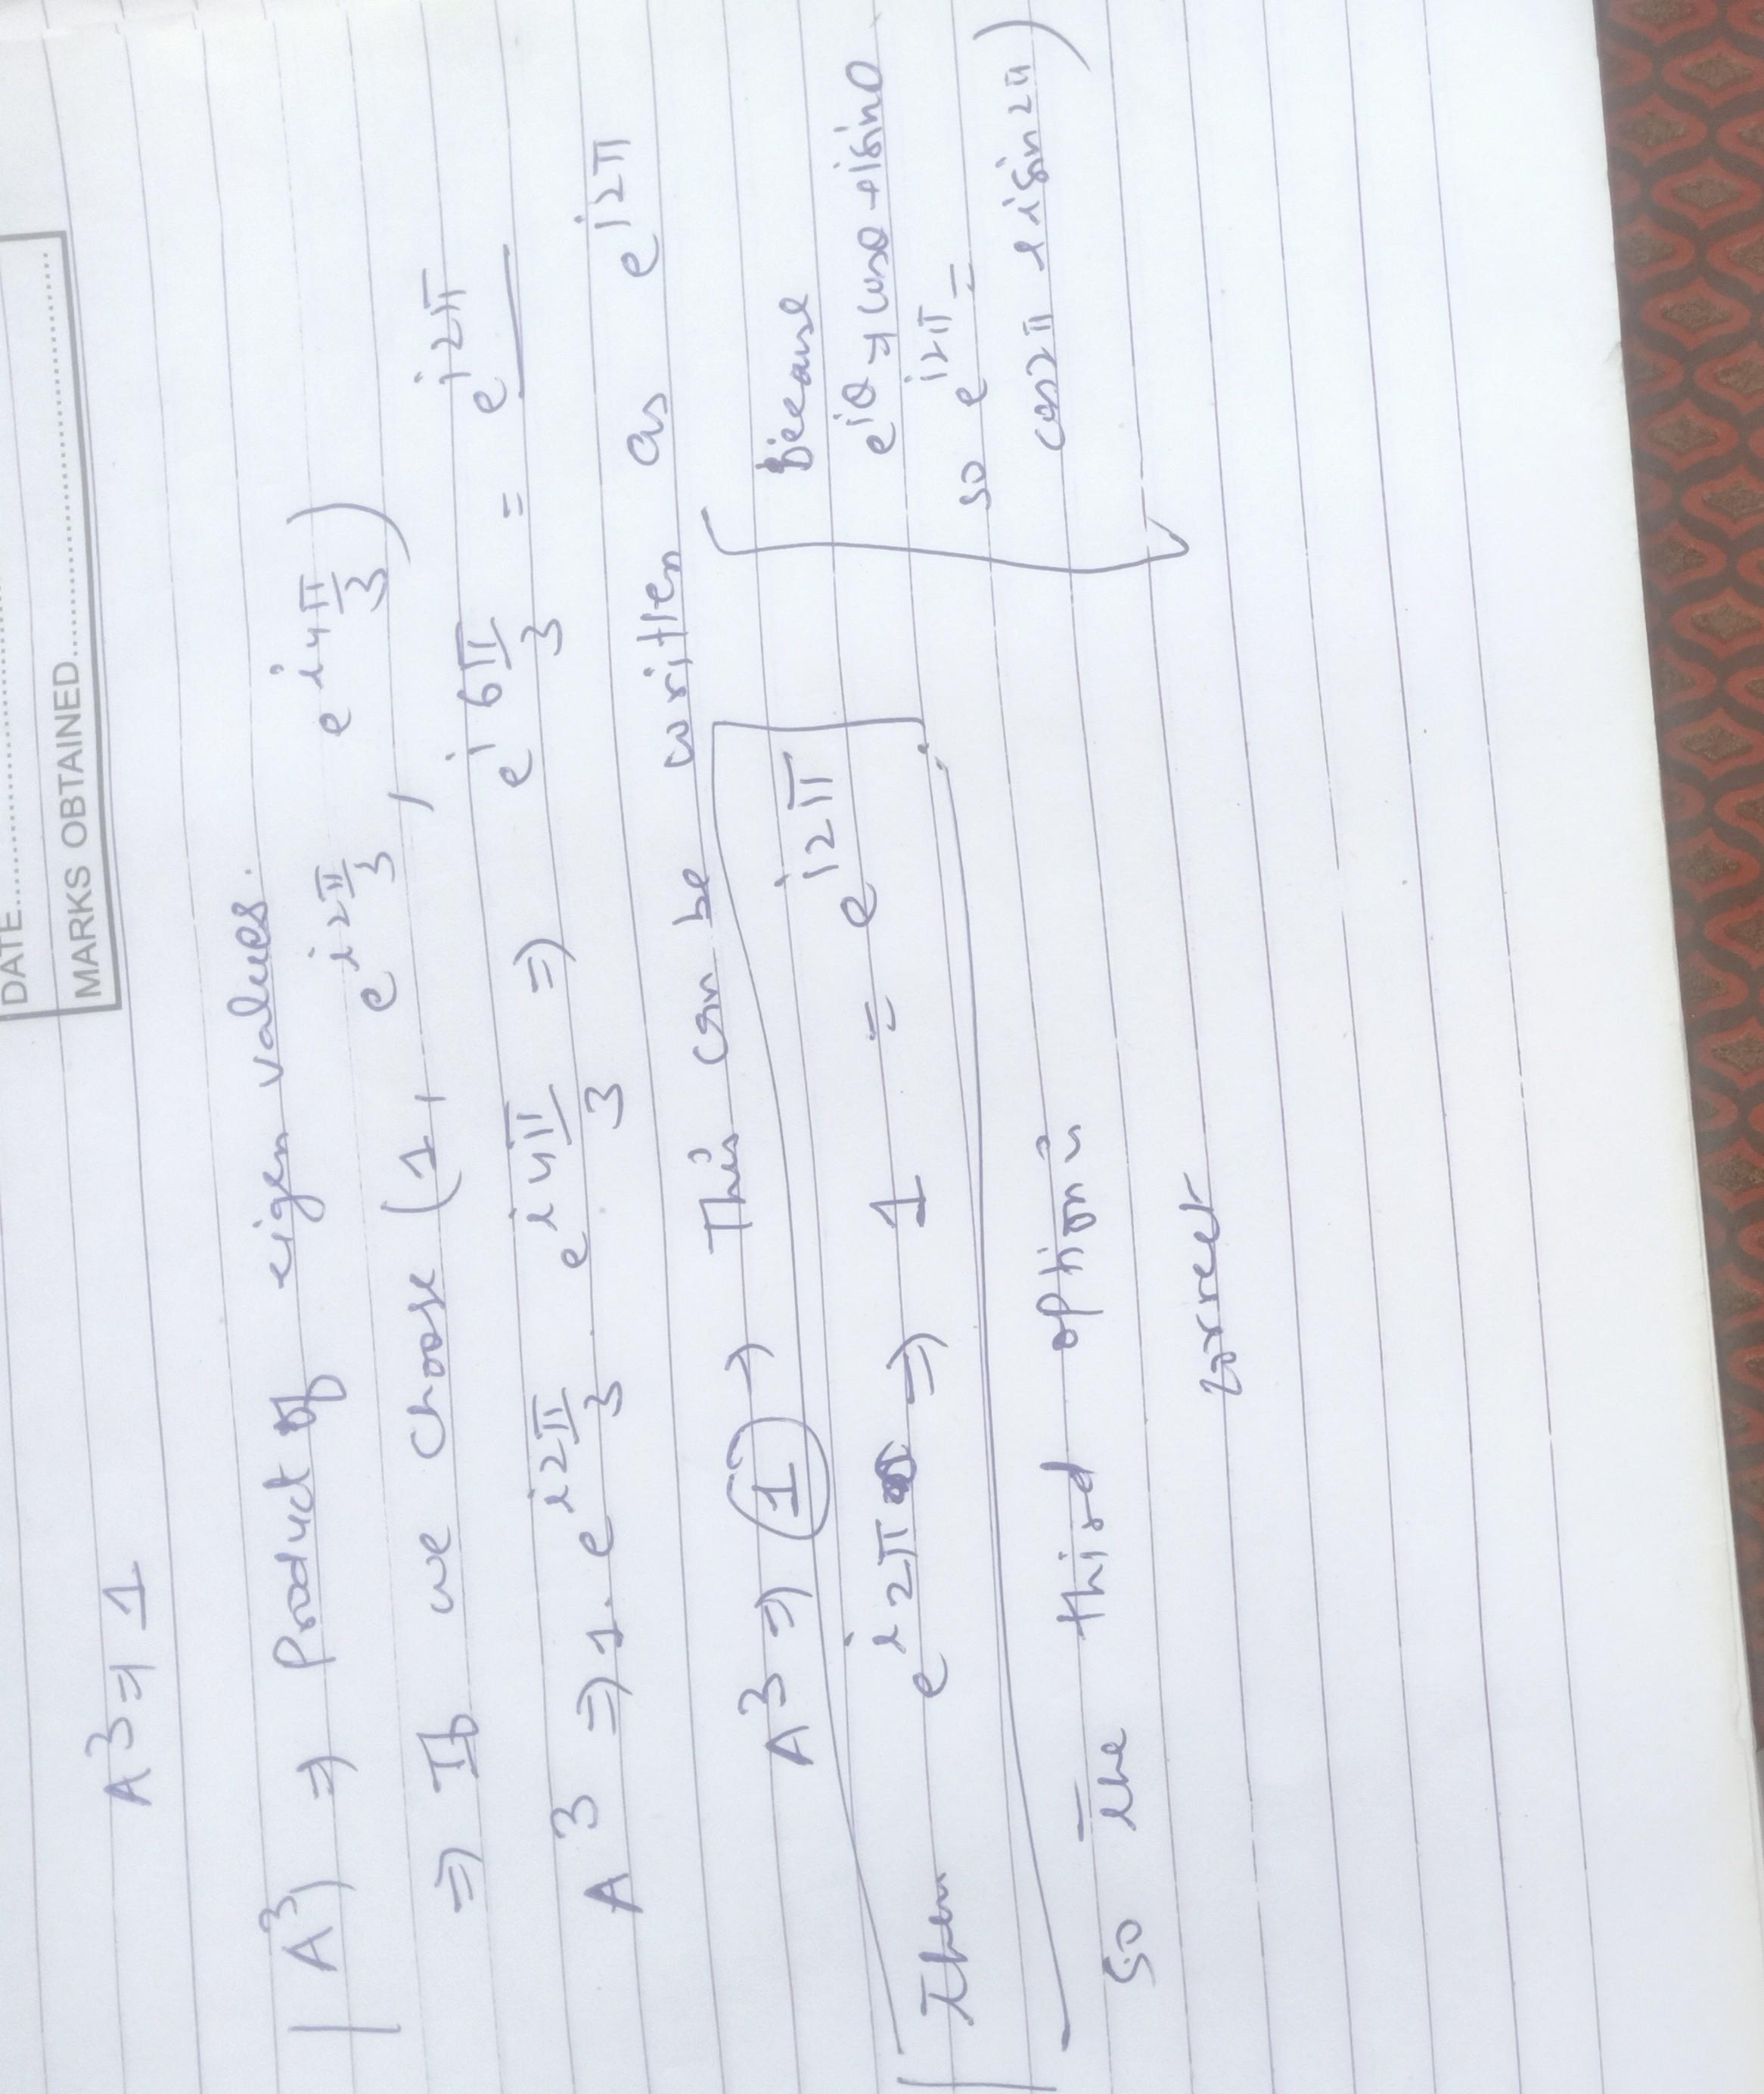 DATE..................
MARKS OBTAINED..................
A³ ⇒ 1
|A³| ⇒ Product of eigen values.
⇒ If we choose (1, e^{i2π/3}, e^{i4π/3})
A³ ⇒ 1. e^{i2π/3} . e^{i4π/3} ⇒ e^{i6π/3} = e^{i2π}
A³ ⇒ 1 → This can be written as e^{i2π}
then e^{i2π} ⇒ 1 = e^{i2π}
Because
e^{iθ} ⇒ cosθ + isinθ
so e^{i2π} =
cos2π + isin2π)
So the third option is
correct